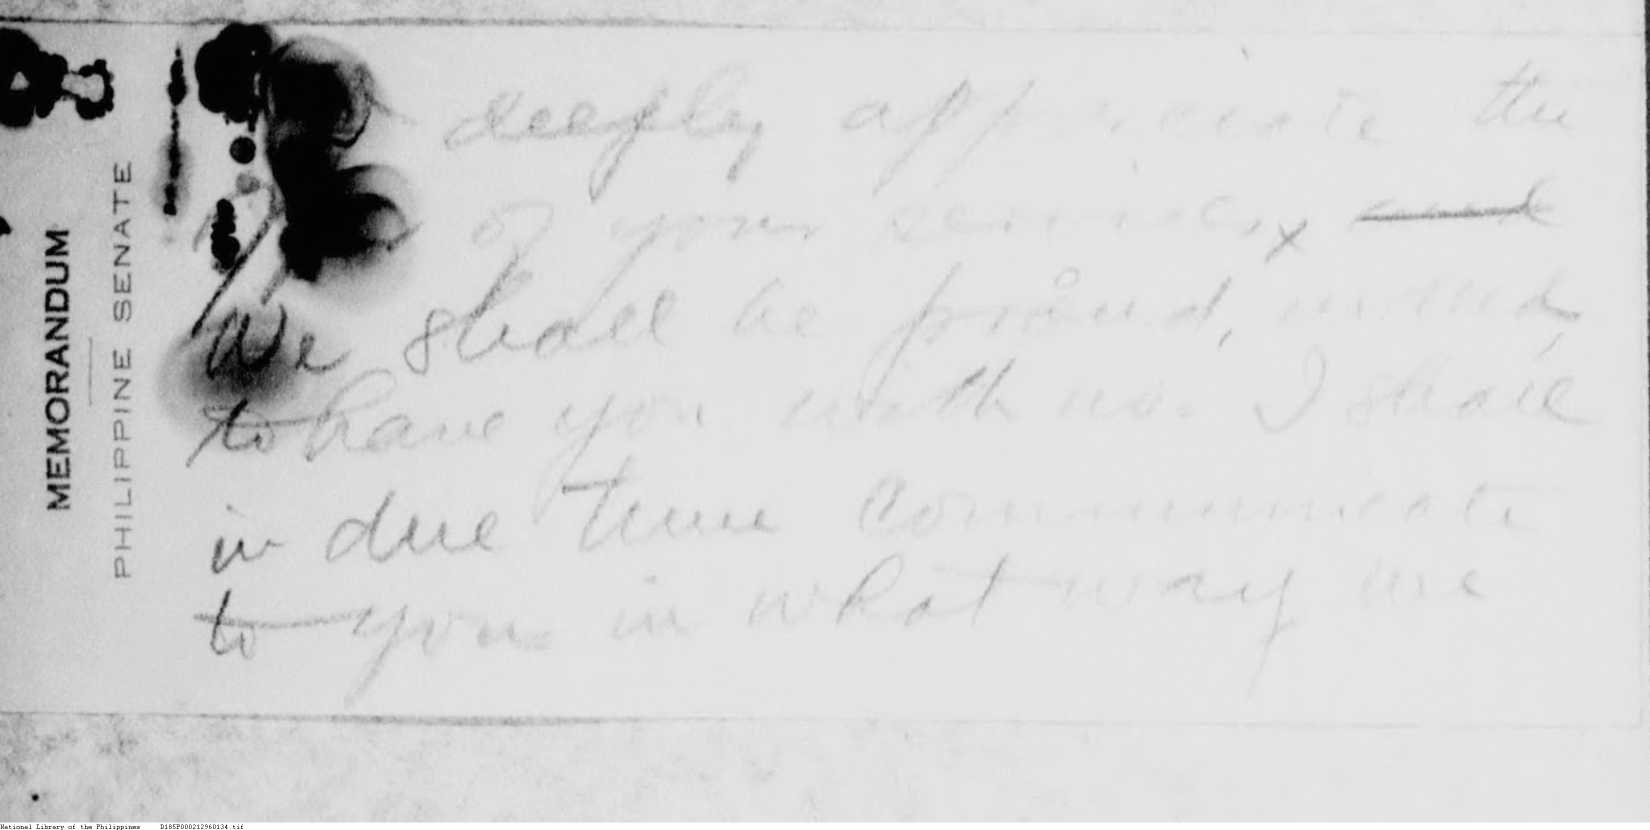 MEMORANDUM
PHILIPPINE SENATE
deeply appreciate the
of your services, and
We shall be proud, indeed,
to have you with us. I shall
in due time communicate
to you in what way we
National Library of the Philippines D185P000212960134.tif